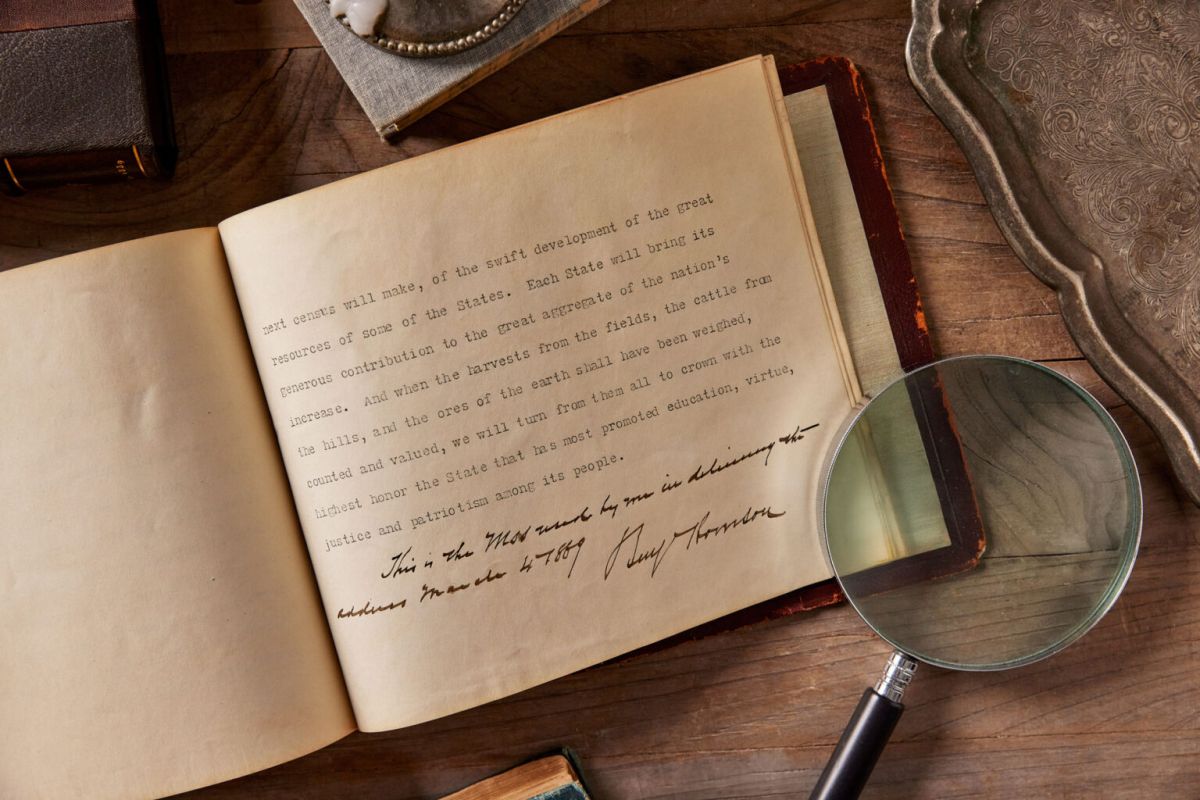 next census will make, of the swift development of the great
resources of some of the States. Each State will bring its
generous contribution to the great aggregate of the nation's
increase. And when the harvests from the fields, the cattle from
the hills, and the ores of the earth shall have been weighed,
counted and valued, we will turn from them all to crown with the
highest honor the State that has most promoted education, virtue,
justice and patriotism among its people.
This is the Mss used by me in delivering the
address March 4th 1889 Benj Harrison